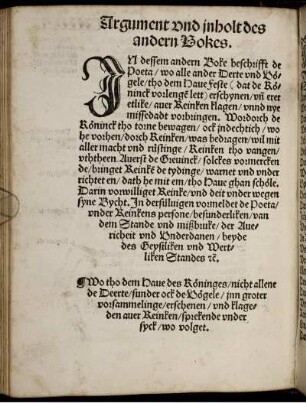 Argument vnd jnholt des
andern Bokes.
IN dessem andern Boke beschrifft de
Poeta / wo alle ander Deerte vnd Vö-
gele / tho dem Haue feste (dat de Kö-
ninck vorlenget lett) erschynen / vñ eret
etlike / auer Reinken klagen / vnnd nye
missedadt vorbringen. Wordorch de
Köninck tho torne bewagen / ock jndechtich / wo
he vorhen / dorch Reinken / was bedragen / wil mit
aller macht vnd rüstinge / Reinken tho vangen /
vththeen. Auerst de Greuinck / solckes vormercken
de / bringet Reinke de tydinge / warnet vnd vnder
richtet en / dath he mit em tho Haue ghan schöle.
Darin vorwilliget Reinke / vnd deit vnder wegen
syne Bycht. In dersüluigen vormeldet de Poeta /
vnder Reinkens persone / besünderliken / van
dem Stande vnd mißbruke / der Aue-
richeit vnd Vnderdanen / beyde
des Geystliken vnd Wert-
liken Standes ꝛc.
¶ Wo tho dem Haue des Köninges / nicht allene
de Deerte / sunder ock de Vögele / jnn groter
vorsammelinge / erschenen / vnd klage-
den auer Reinken / sprekende vnder
syck / wo volget.